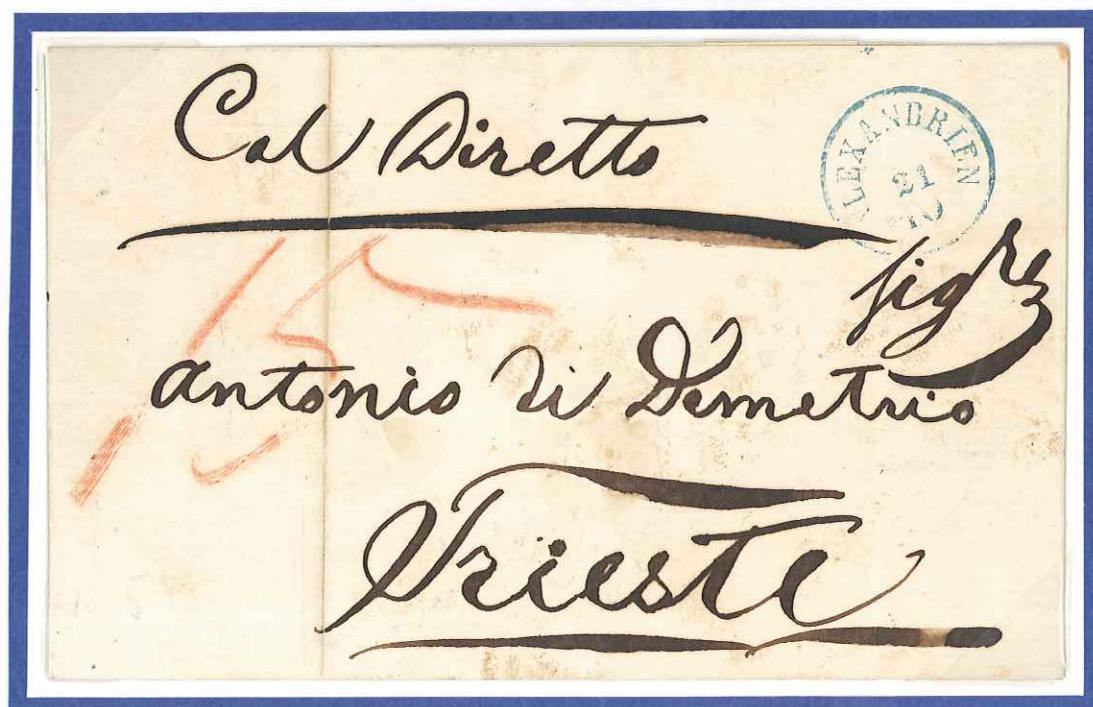 Col Diretto
ALEXANDRIEN
21
10
Sigre
Antonio di Demetrio
15
Trieste